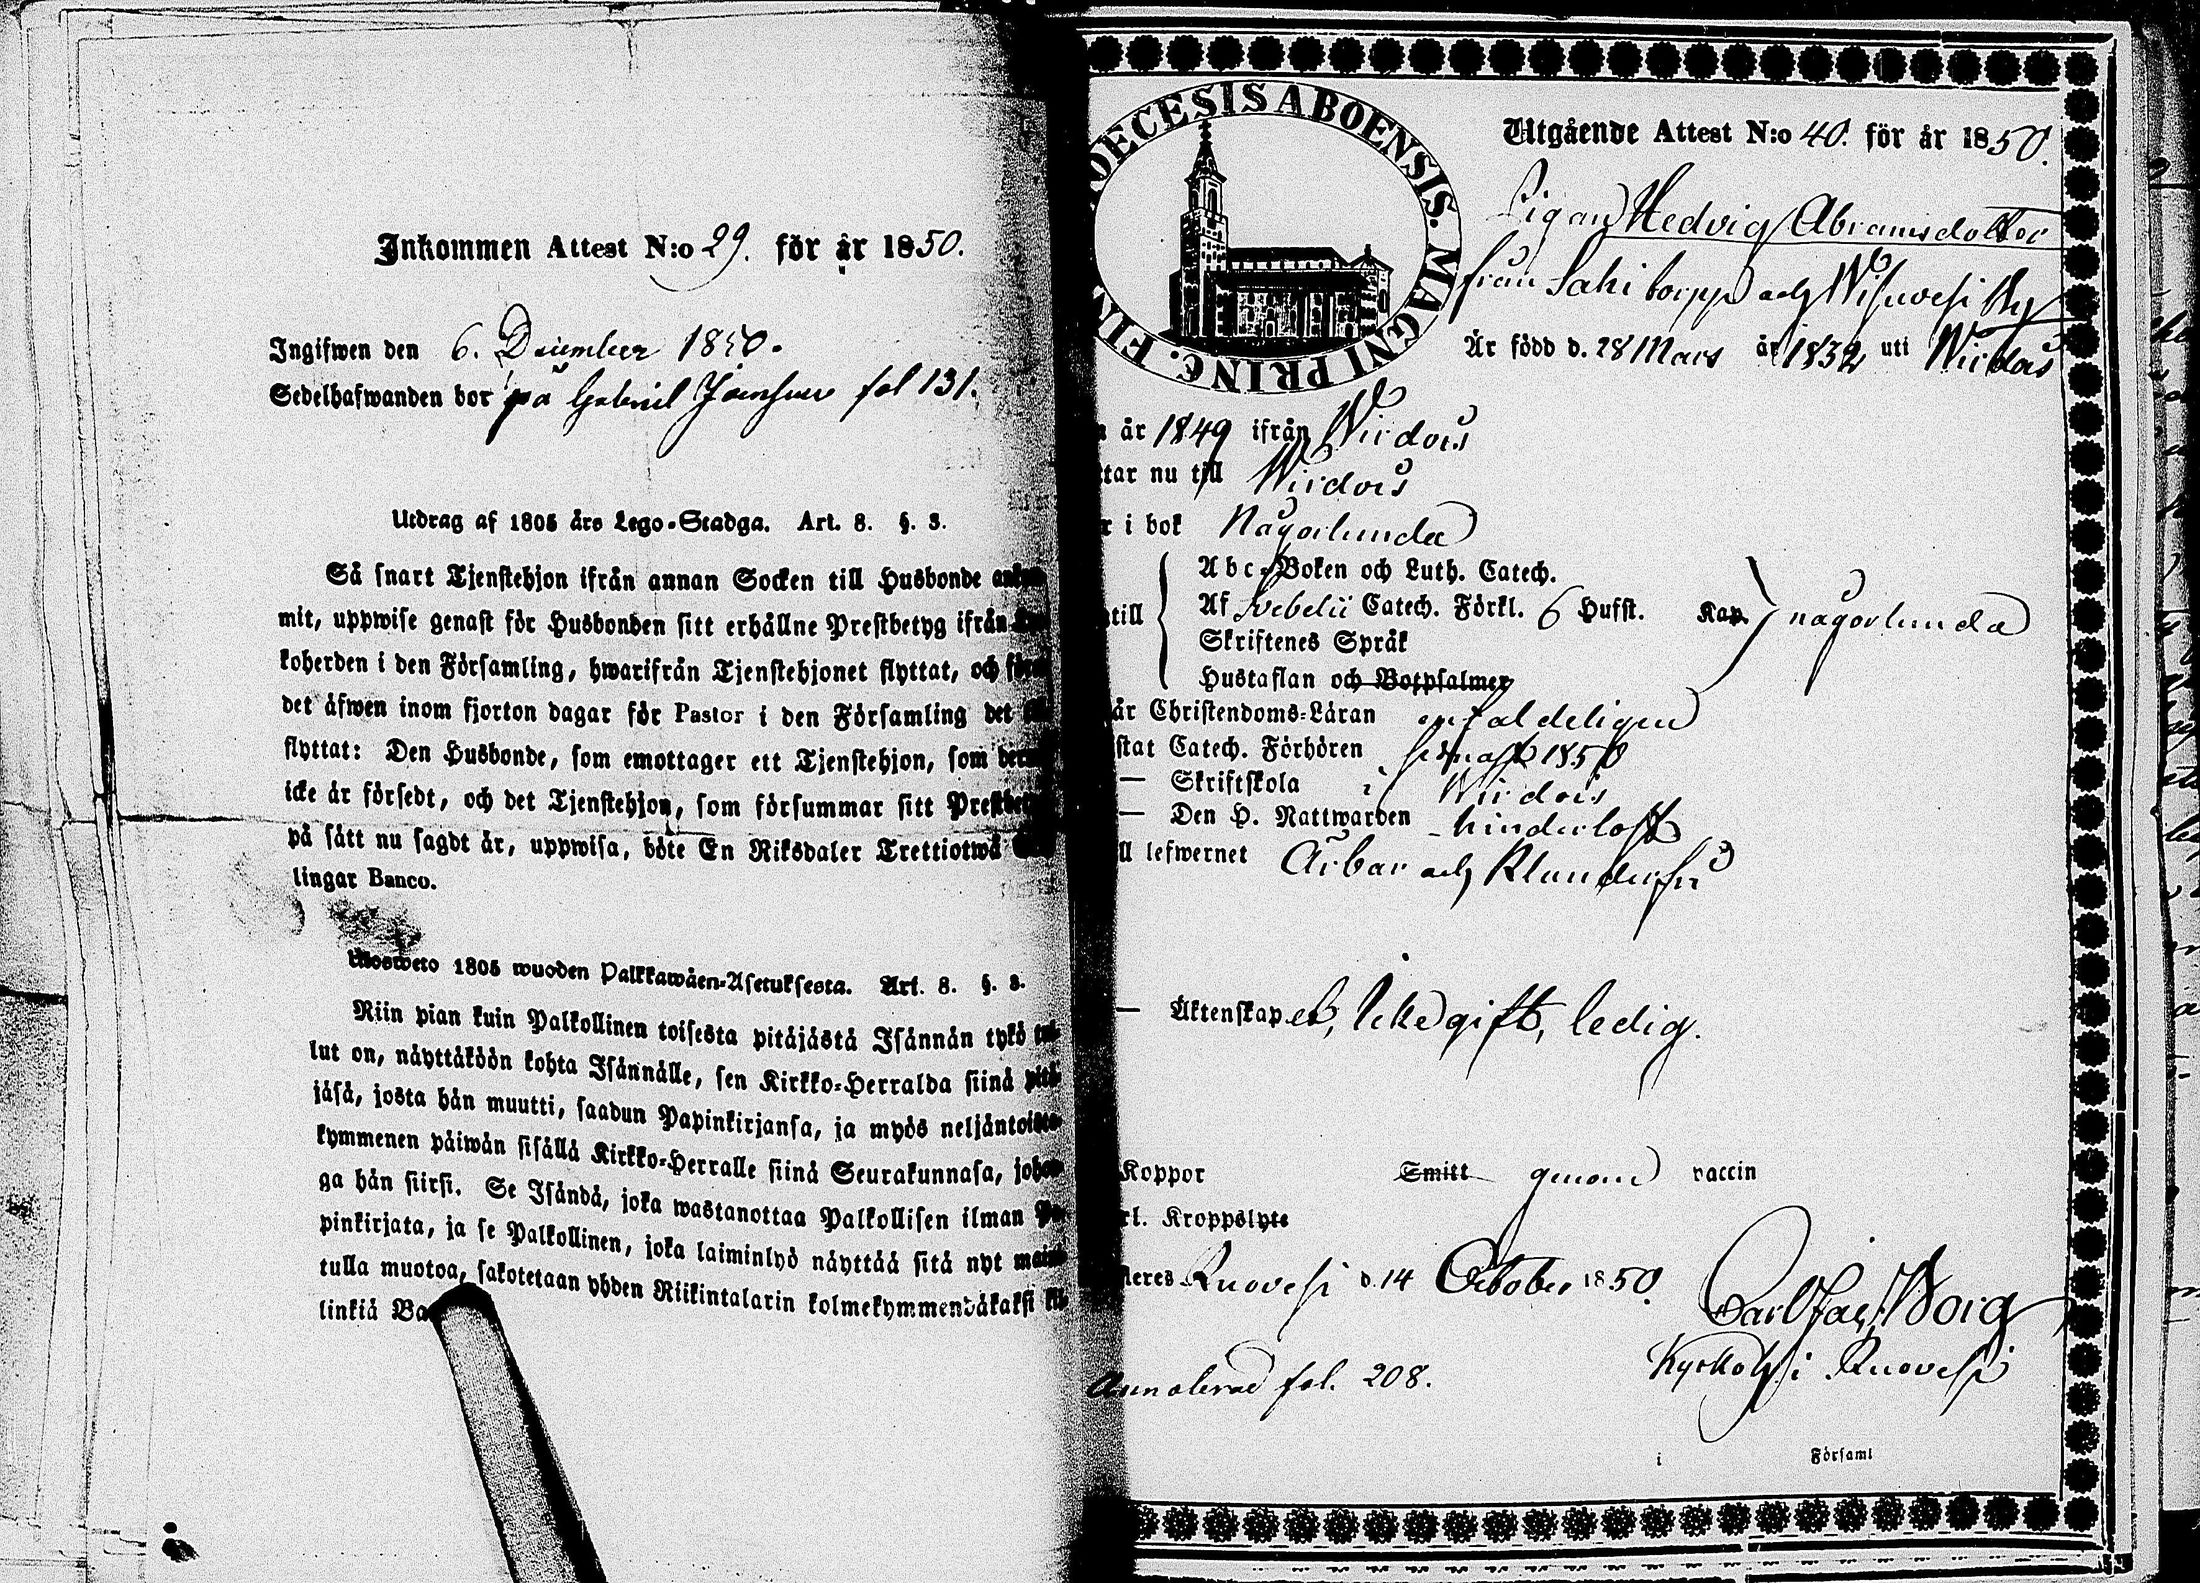 Inkommen Attest N:o 29. för år 1850.
Ingifwen den 6. December 1850.
Sedelhafwanden bor på Gabriel fol 131.
Utdrag af 1805 års Lego-Stadga. Art. 8. §. 3.
Så snart Tjenstehjon ifrån annan Socken till Husbonde
mit, uppwise genast för Husbonden sitt erhållne Prestbetyg ifrån
koherden i den Församling, hwarifrån Tjenstehjonet flyttat, och
det äfwen inom fjorton dagar för Pastor i den Församling det
flyttat: Den Husbonde, som emottager ett Tjenstehjon, som
icke är försedt, och det Tjenstehjon, som försummar sitt
på sätt nu sagdt är, uppwisa, böte En Riksdaler Trettiotwå
lingar Banco.
Ulosweto 1805 wuoden Palkkawäen-Asetuksesta. Art. 8. §. 3.
Niin pian kuin Palkollinen toisesta pitäjästä Isännän tykö
lut on, näyttäköön kohta Isännälle, sen Kirkko-Herralda siinä
jäsä, josta hän muutti, saadun Papinkirjansa, ja myös
kymmenen päiwän sisällä Kirkko-Herralle siinä Seurakunnasa,
ga hän siirsi. Se Isändä, joka wastanottaa Palkollisen ilman
pinkirjata, ja se Palkollinen, joka laiminlyö näyttää sitä nyt
tulla muotoa, sakotetaan yhden Riikintalarin kolmekymmendäkaksi
linkiä
DECESIS ABOENSIS. MAGNI PRINC. FIN
Utgående Attest N:o 40. för år 1850.
Pigan Hedvig Abramsdotter
från Sahi torpp och Wisuvesi By
Är född d. 28 Mars år 1832 uti Wirdois
år 1849 ifrån Wirdois
tar nu till Wirdois
i bok Någorlunda
till
Abc-Boken och Luth. Catech.
Af Svebelii Catech. Förkl. 6 Hufst. Kap. någorlunda
Skriftenes Språk
Hustaflan och Botpsalmer
är Christendoms-Läran enfaldeligen
stat Catech. Förhören senast 1850
— Skriftskola i Wirdois
— Den H. Nattwarden hinderlöst
ll lefwernet Ärbar och
— Äktenskapet, Icke gift, ledig.
Koppor Smitt genom vaccin
rl. Kroppslyte
Ruovesi d. 14 October 1850.
Carl Jac. Borg
Kyrkoh i Ruovesi
Annoterad fol. 208.
i Församl